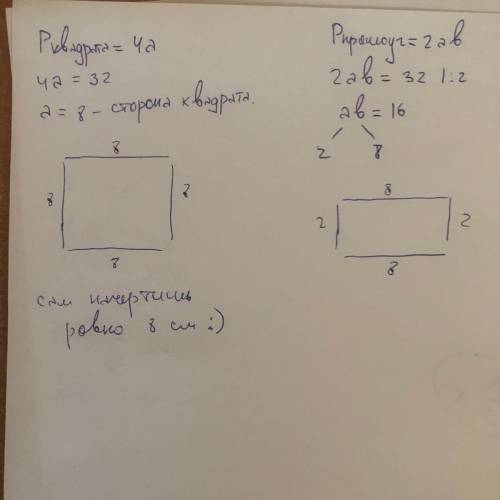 Pквадрата = 4a
4a = 32
a = 8 – сторона квадрата.
8
8
8
8
сам начертишь
ровно 8 см :)
Pпрямоуг = 2ab
2ab = 32 |:2
ab = 16
2 8
8
2
2
8